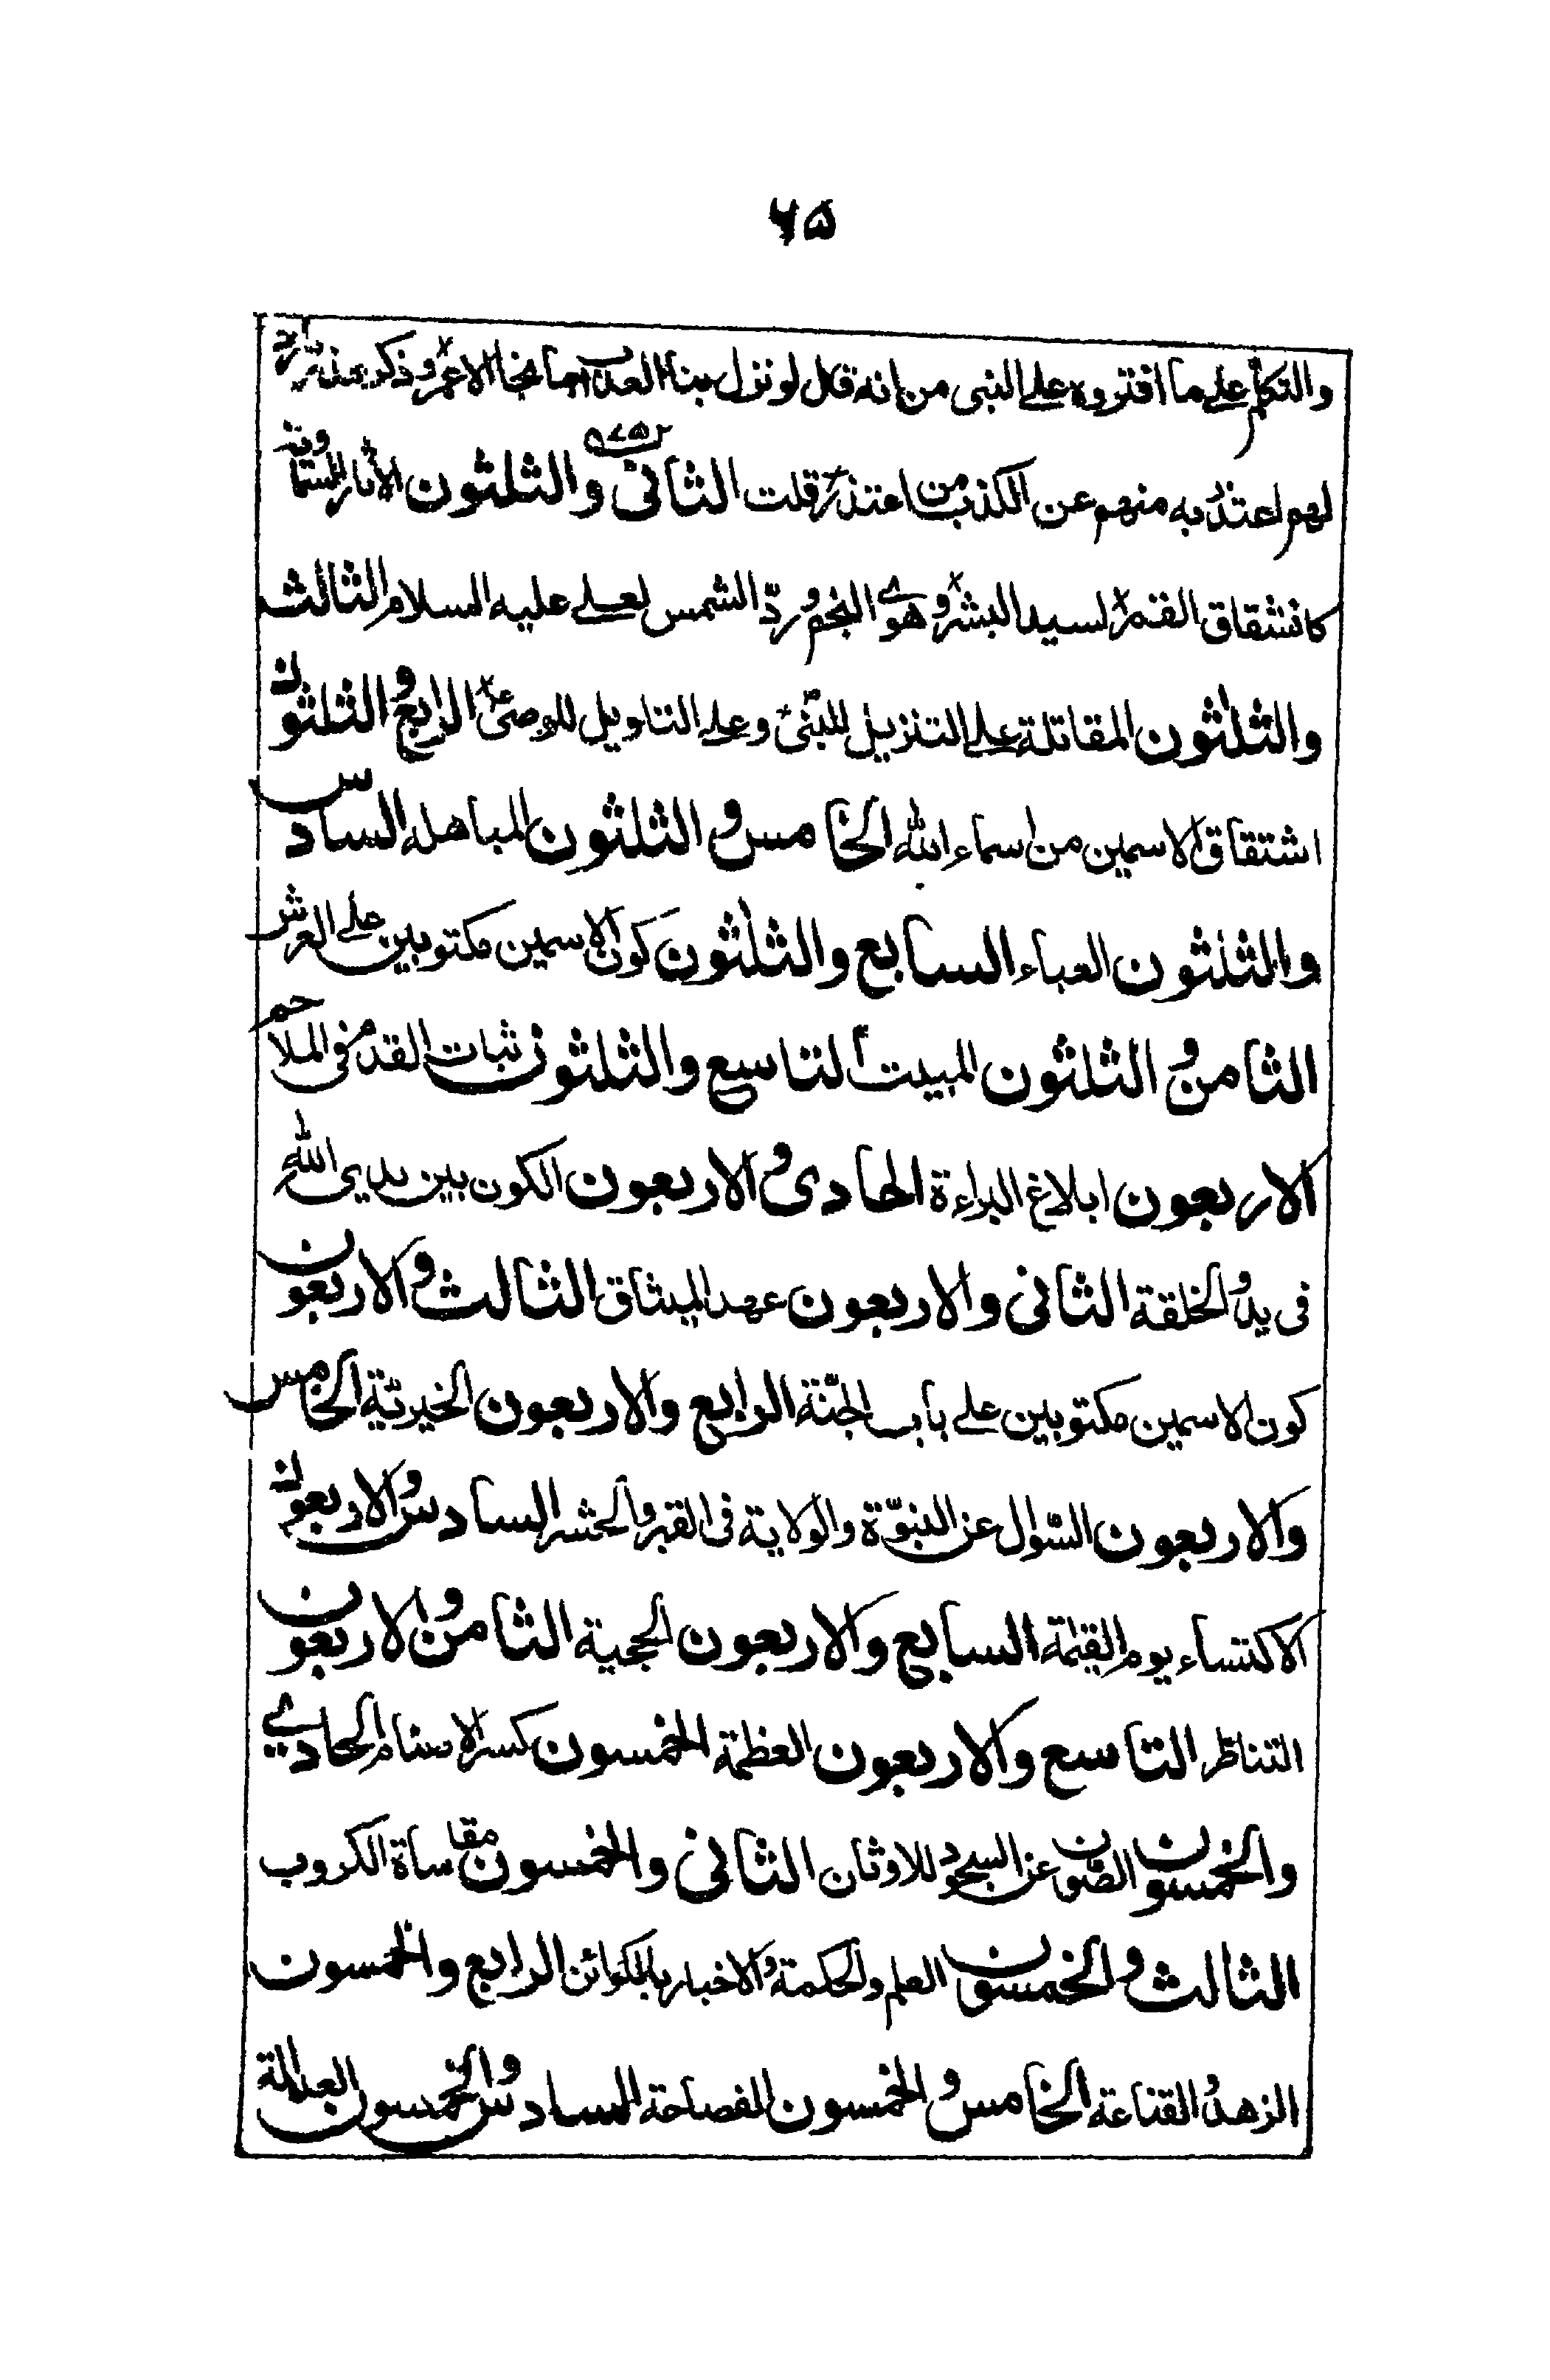 ۶۵
والتكلم على ما افتروه على النبى من انه قال لو نزل بنا العذاب ما نجا الا عمر و ذكر
لهم اعتذر به منهم عن الكذب من اعتذر قلت الثانى والثلثون الآثار السماوية
كانشقاق القمر لسيد البشر و هوى النجم و ردّ الشمس لعلے عليه السلام الثالث
والثلثون المقاتلة على التنزيل للنبى و على التاويل للوصى الرابع و الثلثون
اشتقاق الاسمين من اسماء الله الخامس و الثلثون المباهله السادس
والثلثون العباء السابع والثلثون كون الاسمين مكتوبين على العرش
الثامن و الثلثون المبيت التاسع والثلثون ثبات القدم فى الملاحم
الاربعون ابلاغ البراءة الحادى و الاربعون الكون بين يدى الله
فى بدو الخلقة الثانى والاربعون عهد الميثاق الثالث و الاربعون
كون الاسمين مكتوبين على باب الجنّة الرابع والاربعون الخيريّة الخامس
والاربعون السّؤال عن النبوّة والولاية فى القبر و الحشر السادس و الاربعون
الاكتساء يوم القيٰمة السابع والاربعون الحجية الثامن و الاربعون
التناظر التاسع والاربعون العظمة الخمسون كسر الاصنام الحادي
والخمسون الصّون عن السجود للاوثان الثانى والخمسون مقاساة الكروب
الثالث و الخمسون العلم والحكمة و الاخبار بالكوائن الرابع والخمسون
الزهد و القناعة الخامس و الخمسون الفصاحة السادس والخمسون العدالة